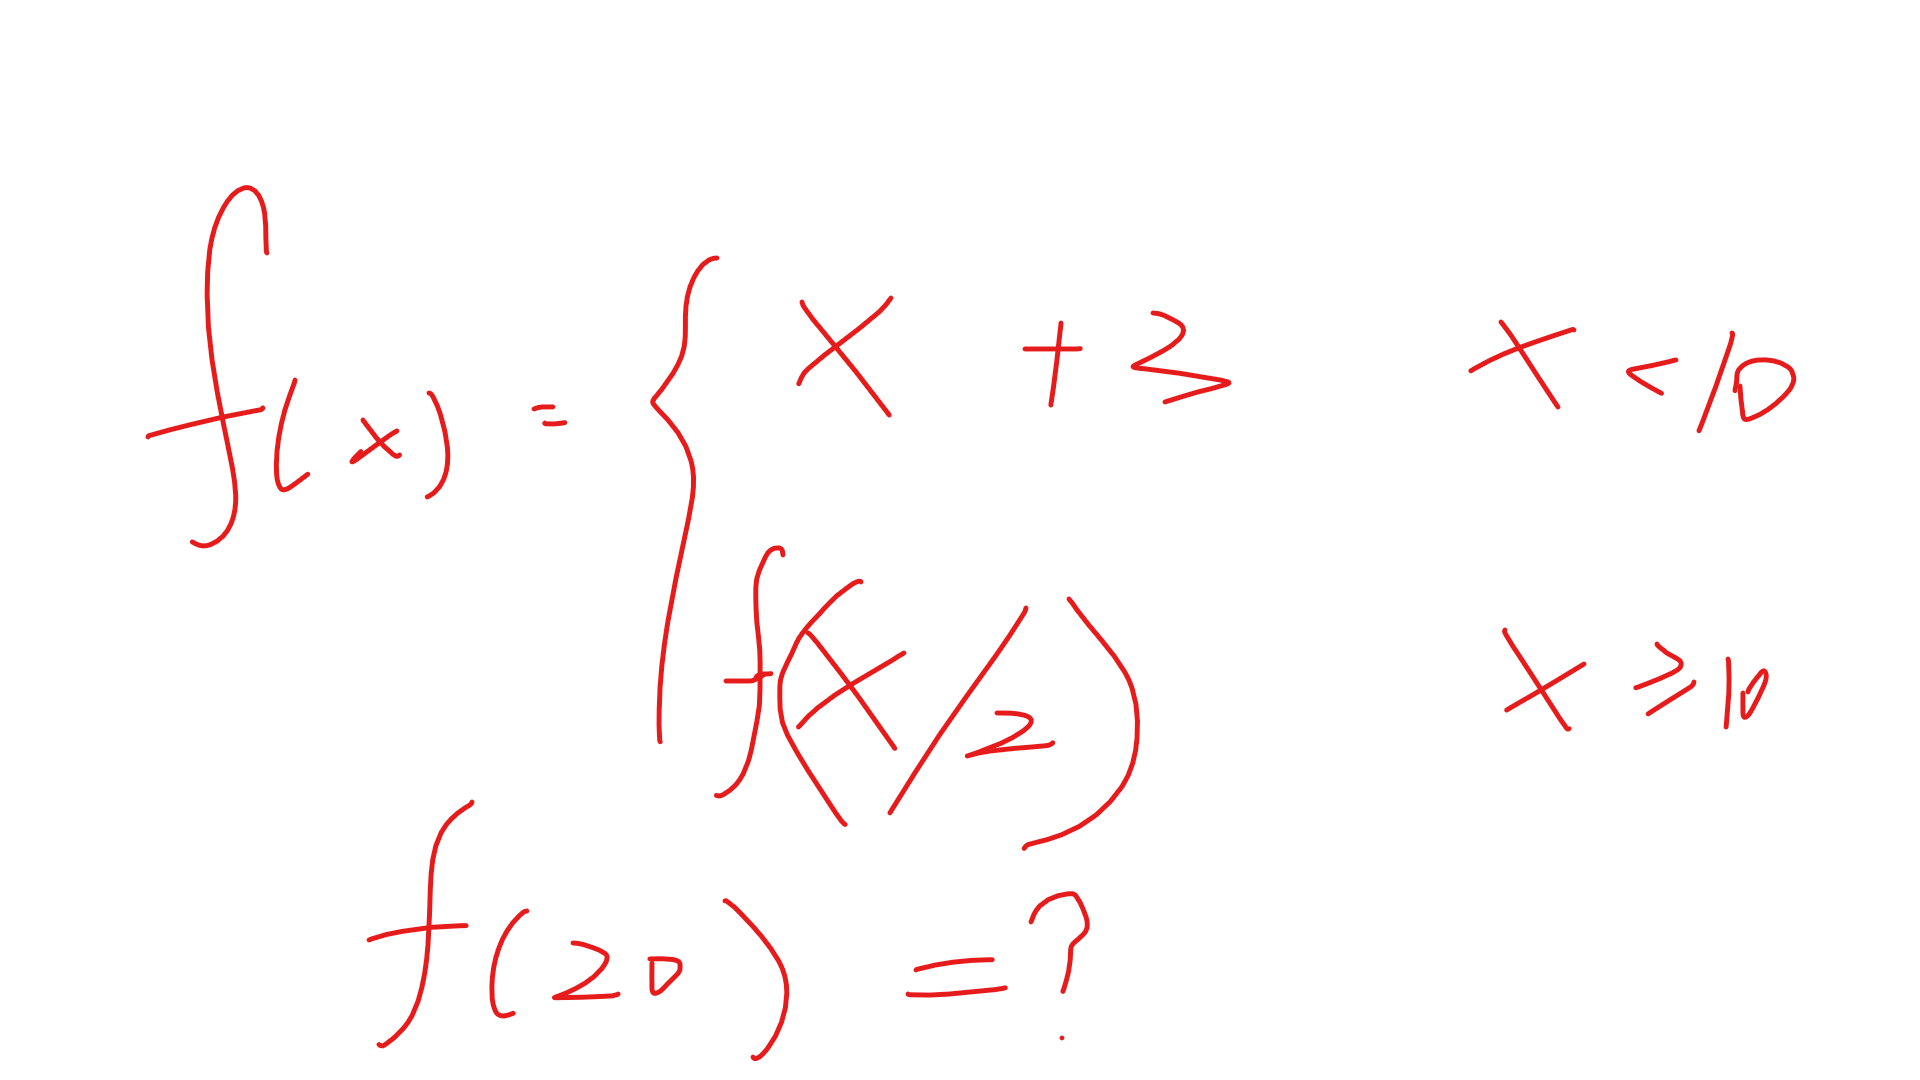 f(x) = { x + 3 x < 10
f(x/2) x ≥ 10
f(20) = ?